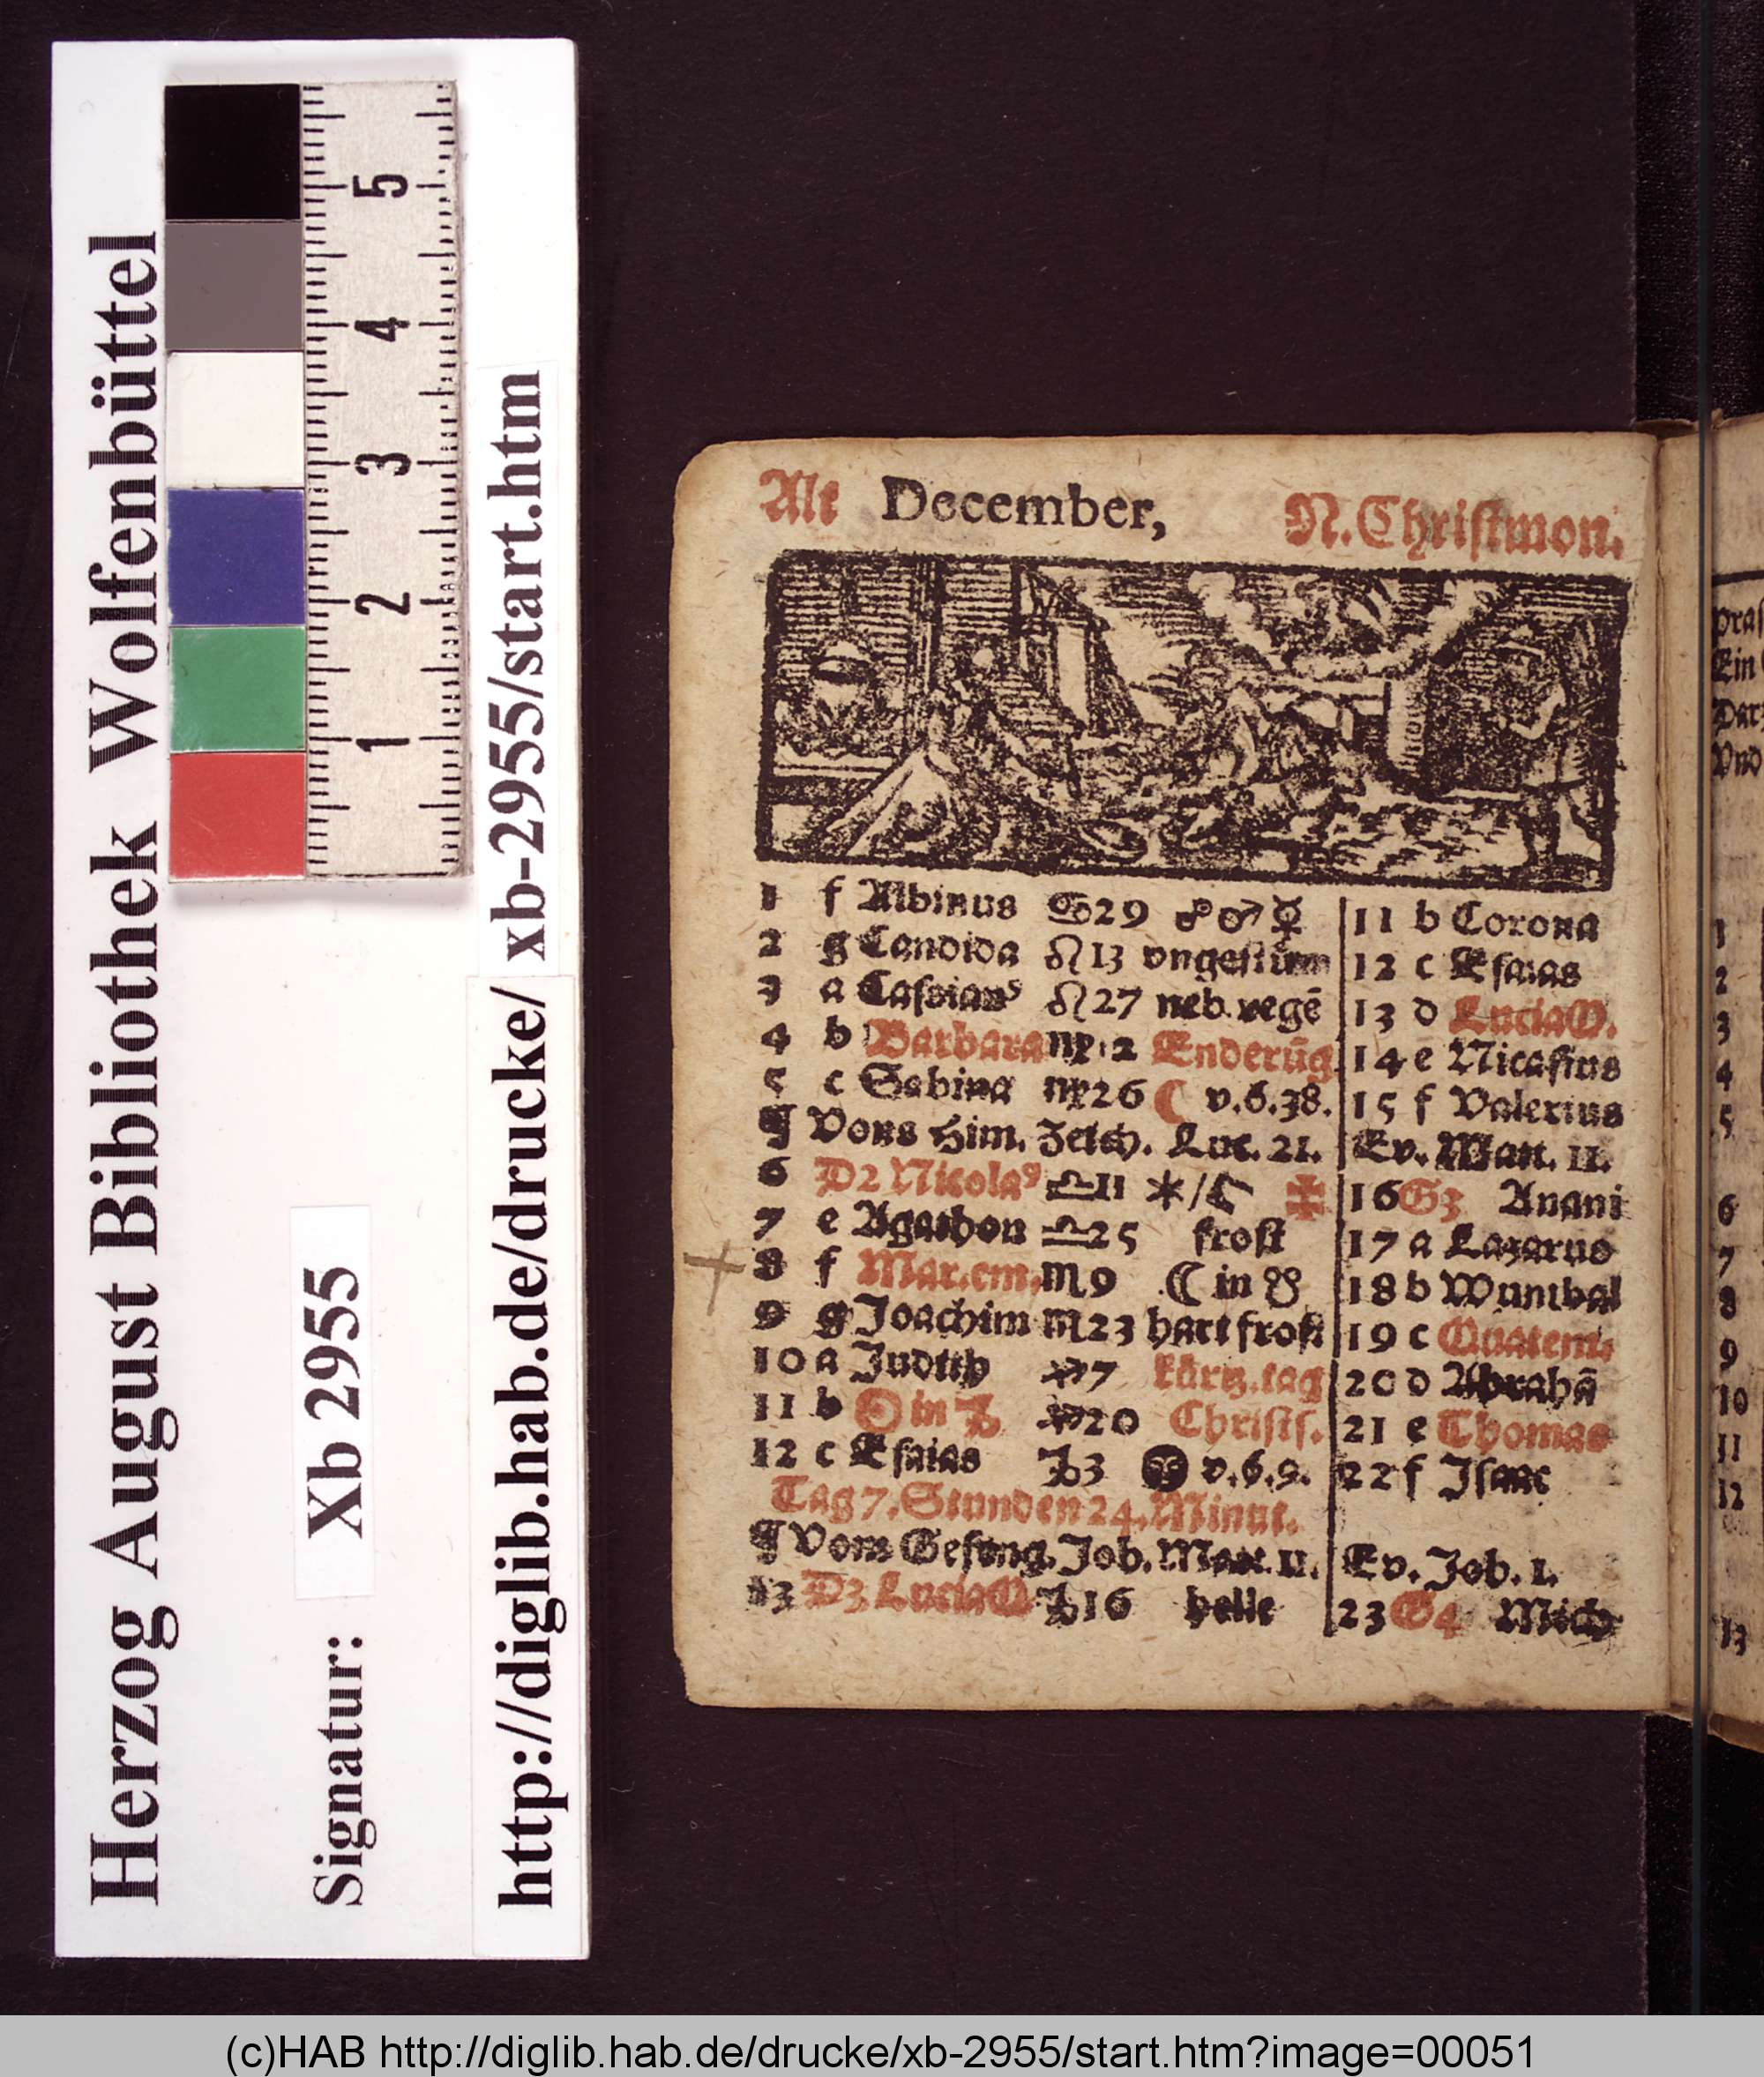 Herzog August Bibliothek Wolfenbüttel
Signatur: Xb 2955
http://diglib.hab.de/drucke/ xb-2955/start.htm
5
4
3
2
1
Alt December, N. Christmon.
1 f Albinus ♋29 ☍ ♂ ☿ 11 b Corona
2 g Candida ♌13 vngestüm 12 c Esaias
3 a Cassian⁹ ♌27 neb. regē 13 d Lucia O.
4 b Barbara ♍12 Enderūg 14 e Nicasius
5 c Sabina ♍26 ☾ v. 6. 38. 15 f Valerius
¶ Vons Him. Zeich. Luc. 21. Ev. Matt. 11.
6 D2 Nicola⁹ ♎11 ✶/♄ ✠ 16 G3 Anani
7 e Agathon ♎25 frost 17 a Lazarus
8 f Mar. em. ♏9 ☾ in ☋ 18 b Wunibal
9 g Joachim ♏23 hart frost 19 c Quatem.
10 a Judith ♐7 kürtz. tag 20 d Abrahā
11 b ☉ in ♑ ♐20 Christs. 21 e Thomas
12 c Esaias ♑3 ● v. 6. 9. 22 f Isaac
Tag 7. Stunden 24. Minut.
¶ Vom Gefäng. Joh. Matt. 11. Ev. Joh. 1.
13 D3 Lucia O ♑16 helle 23 G4 Mich
Ein
1
2
3
4
5
6
7
8
9
10
11
12
13
(c)HAB http://diglib.hab.de/drucke/xb-2955/start.htm?image=00051